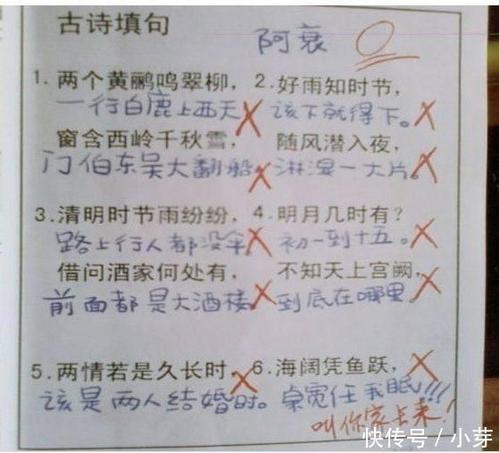 古诗填句
阿衰 0
1. 两个黄鹂鸣翠柳， 2. 好雨知时节，
一行白鹿上西天 该下就得下。
窗含西岭千秋雪， 随风潜入夜，
门伯东吴大翻船 淋湿一大片。
3. 清明时节雨纷纷， 4. 明月几时有？
路上行人都没伞 初一到十五。
借问酒家何处有， 不知天上宫阙，
前面都是大酒楼 到底在哪里
5. 两情若是久长时， 6. 海阔凭鱼跃，
该是两人结婚时。 桌宽任我眠!!!
叫你家长来！
快传号／小芽